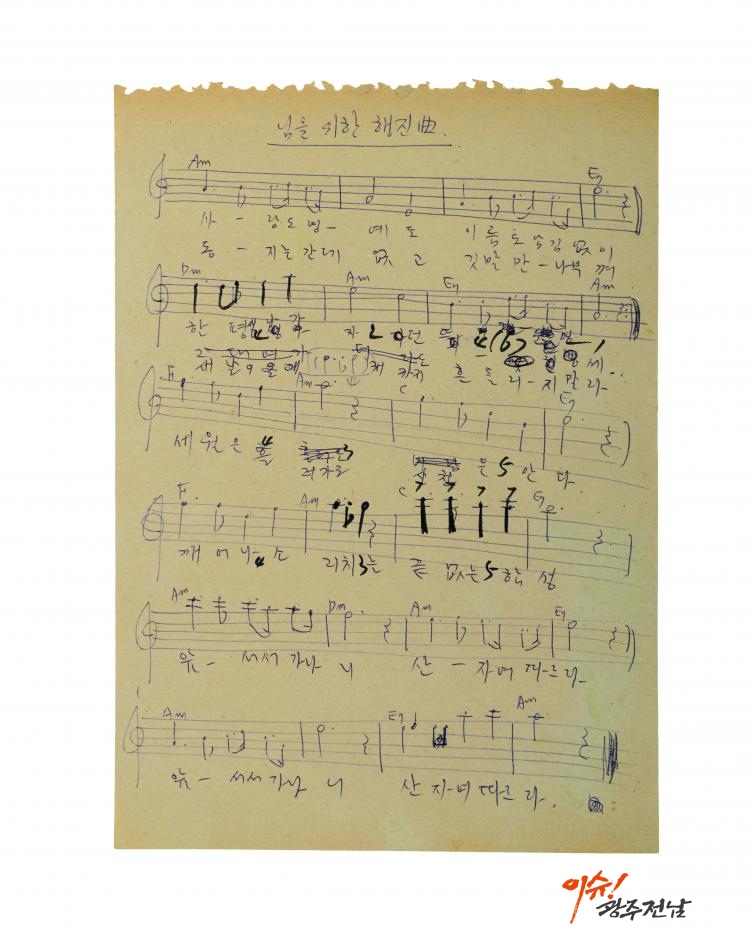 님을 위한 행진曲.
Am E7
사 - 랑도 명 - 예도 이름도 남김 없이
동 - 지는 간데 없고 깃발만 - 나부껴
Dm Am E7 Am
한 평생 자
새 날이 올 때 까지 흔들리 - 지말라
F Am C E7
세월은 흘 러가도 산천 은 안다
F Am C E7
깨어나 소리치는 끝 없는 함성
Am Dm Am E7
앞 - 서서 가나니 산 - 자여 따르라
Am E7 Am
앞 - 서서 가나니 산 자여 따르라.
이슈!
광주전남